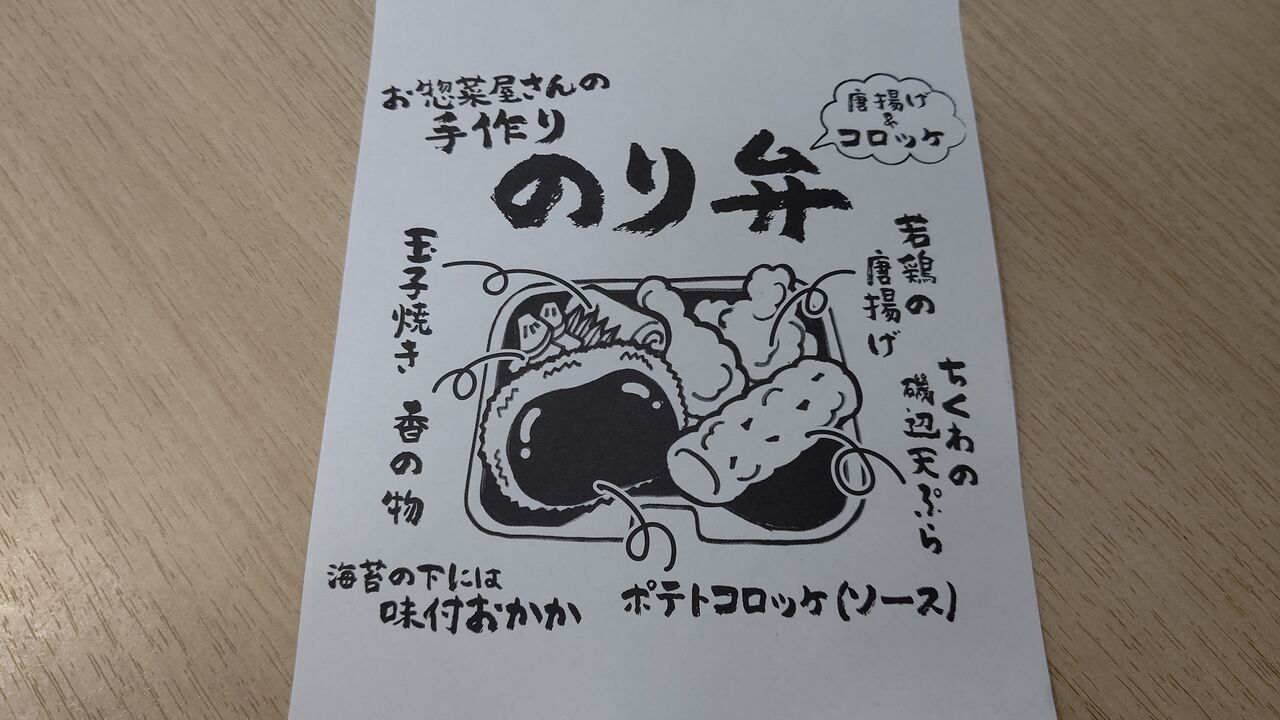 お惣菜屋さんの
手作り
のり弁
唐揚げ
&
コロッケ
若鶏の
唐揚げ
ちくわの
磯辺天ぷら
玉子焼き
香の物
海苔の下には
味付おかか
ポテトコロッケ(ソース)